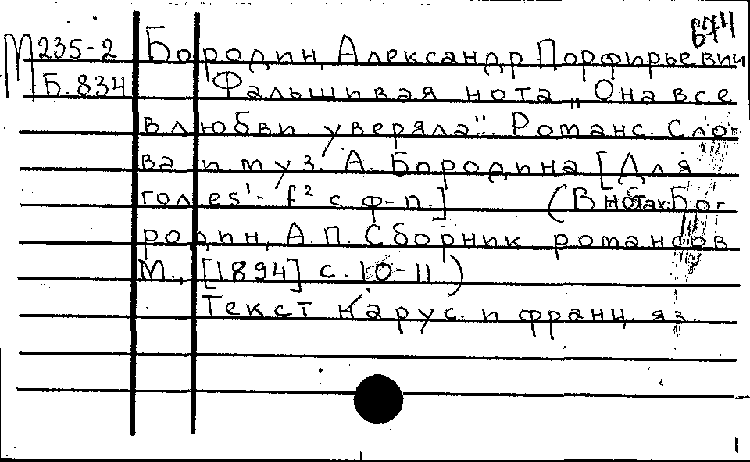 674
М 235-2 Бородин, Александр Порфирьевич
Б.834 Фальшивая нота „Она все
в любви уверяла". Романс. Сло-
ва и муз. А. Бородина [Для
голоса es¹- f² с ф-п.] (В нотах: Бо-
родин, А.П. Сборник романсов
М., [1894] с. 10-11)
Текст на рус. и франц. яз.